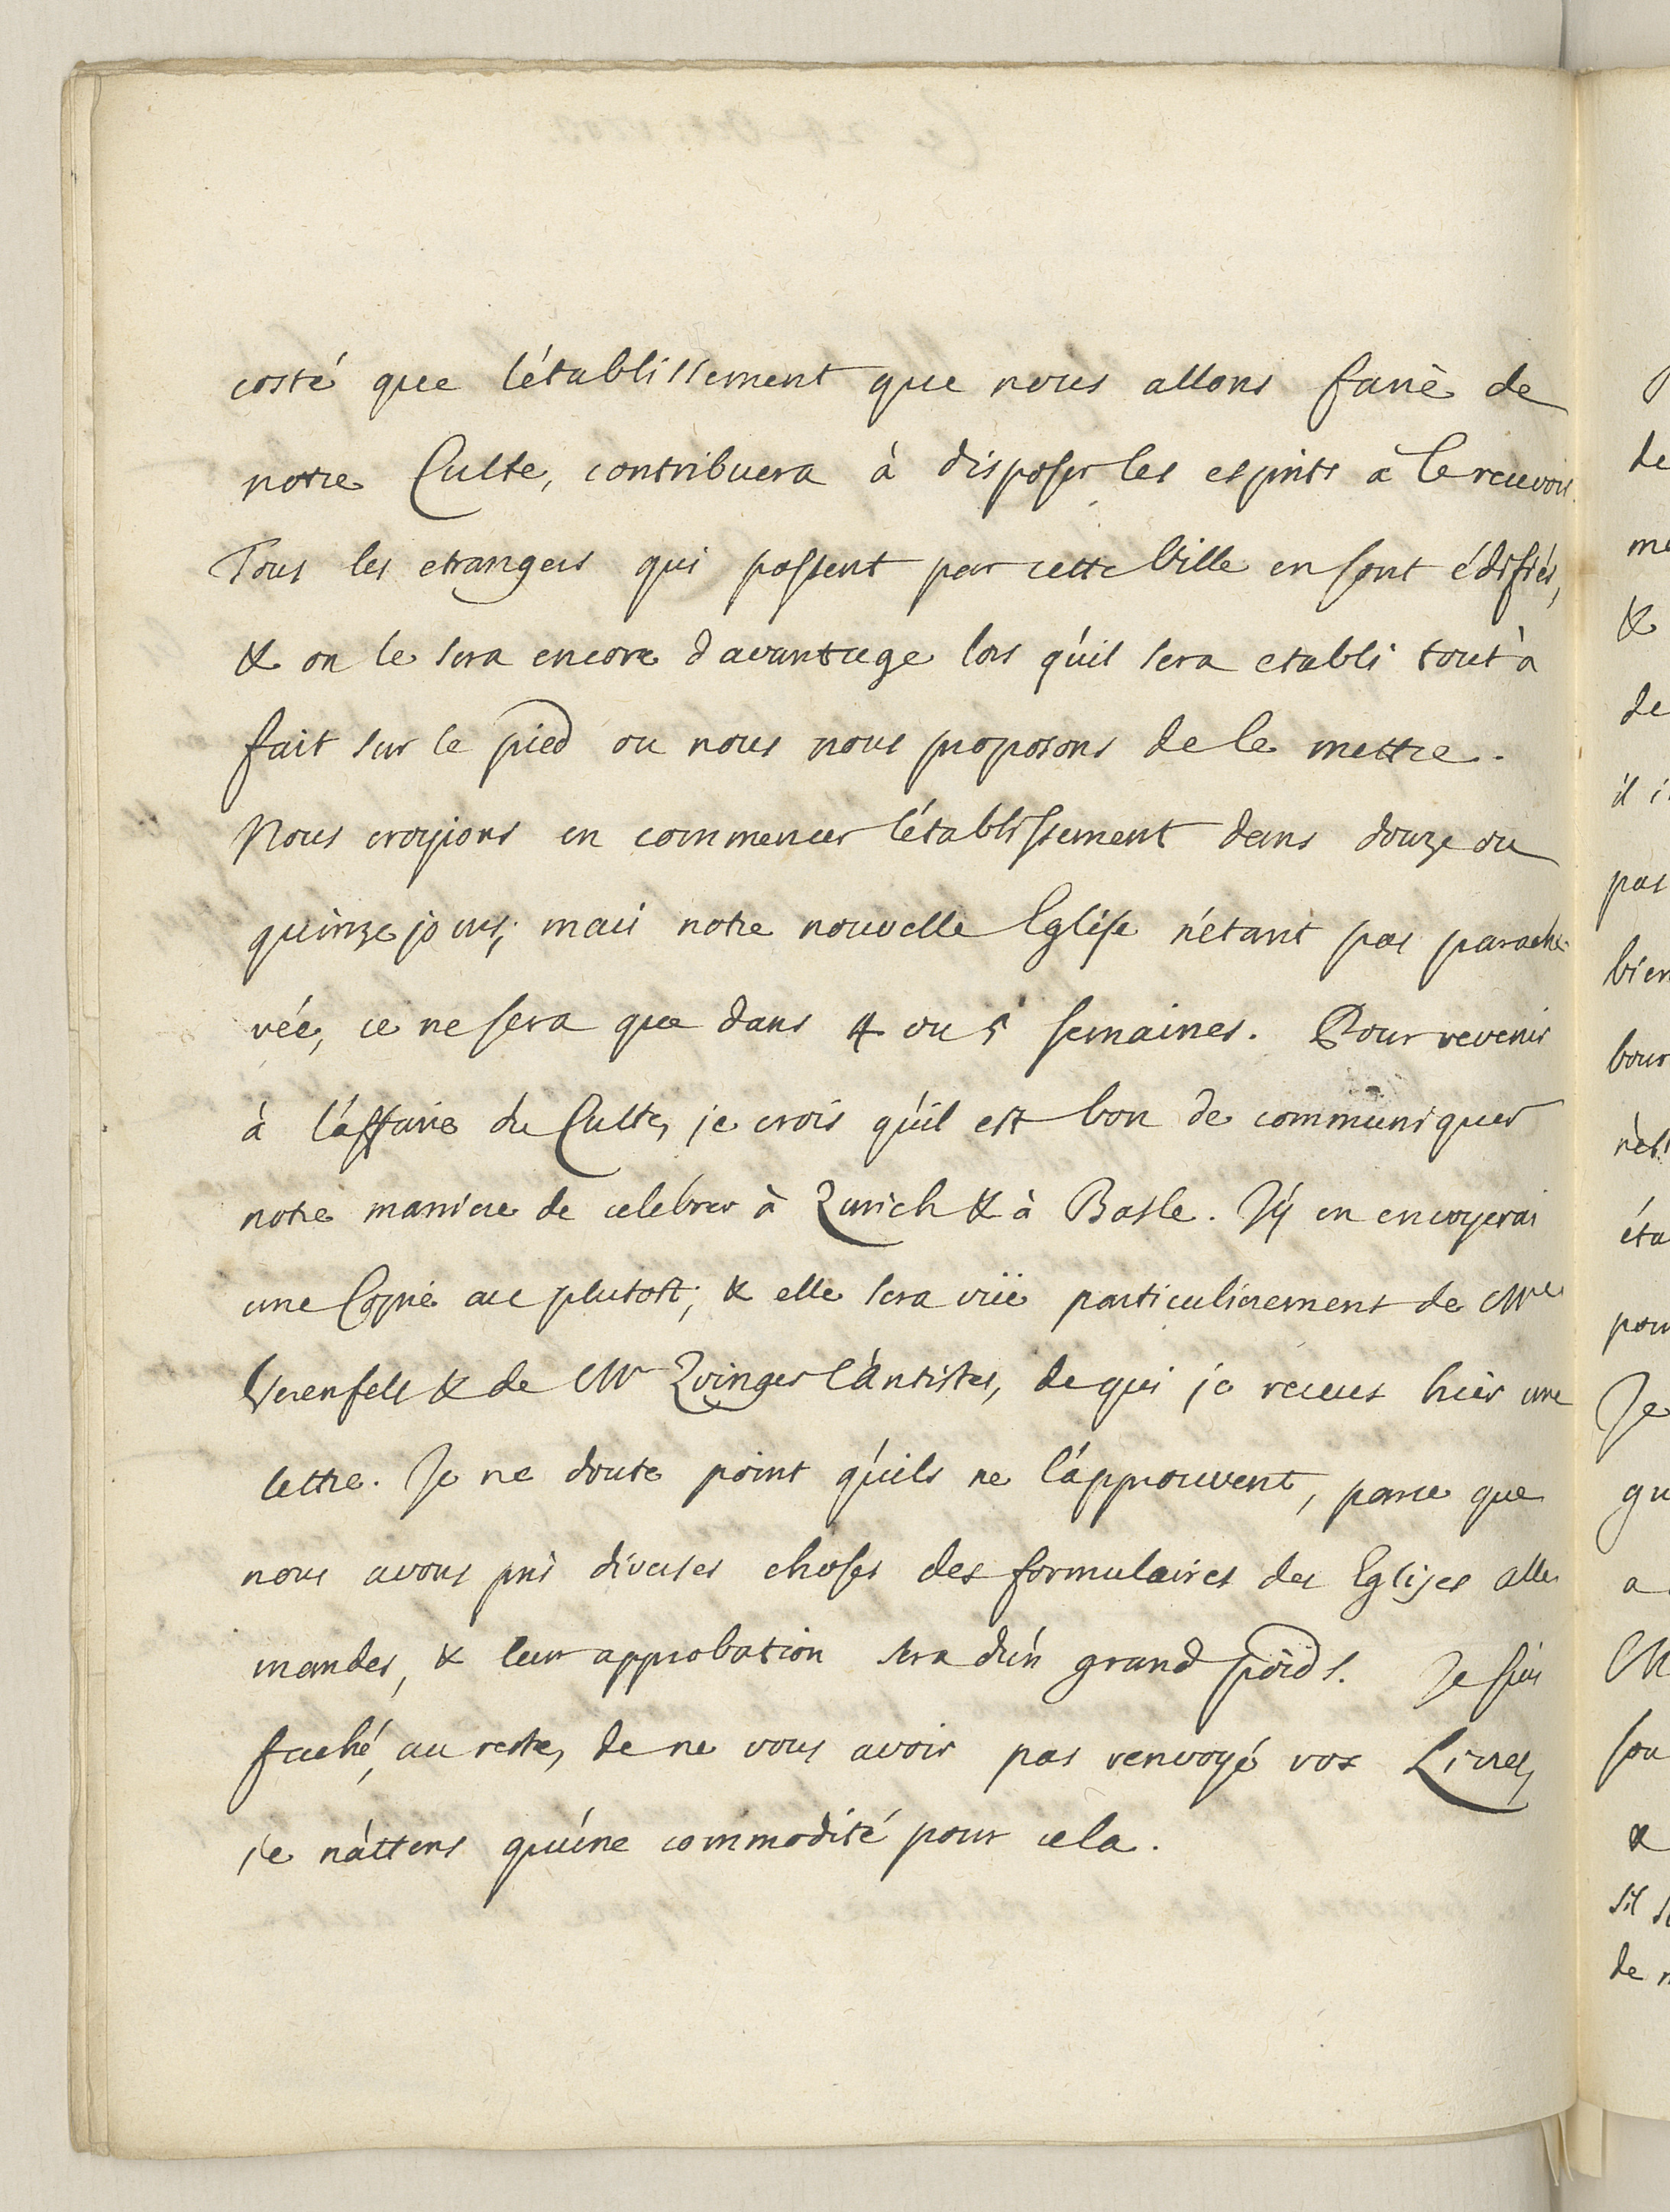 costé que l'établissement que nous allons faire de
notre Culte, contribuera à disposer les esprits à le recevoir.
Tous les etrangers qui passent par cette Ville en sont édifiés,
& on le sera encore d'avantage lors qu'il sera etabli tout à
fait sur le pied ou nous nous proposons de le mettre.
Nous croyions en commencer l'établissement dans douze ou
quinze jours; mais notre nouvelle Eglise n'étant pas parache
vée, ce ne sera que dans 4 ou 5 semaines. Pour revenir
à l'affaire du Culte, je crois qu'il est bon de communiquer
notre maniere de celebrer à Zurich & à Basle. J'y en envoyerai
une Copie au plutost; & elle sera vüe particulierement de Mr
Verenfels & de Mr Zvinger l'Antistes, de qui je receus hier une
lettre. Je ne doute point qu'ils ne l'approuvent, parce que
nous avons pris diverses choses des formulaires des Eglises alle
mandes, & leur approbation sera d'un grand poids. Je suis
faché, au reste, de ne vous avoir pas renvoyé vos Livres,
je n'attens qu'une commodité pour cela.